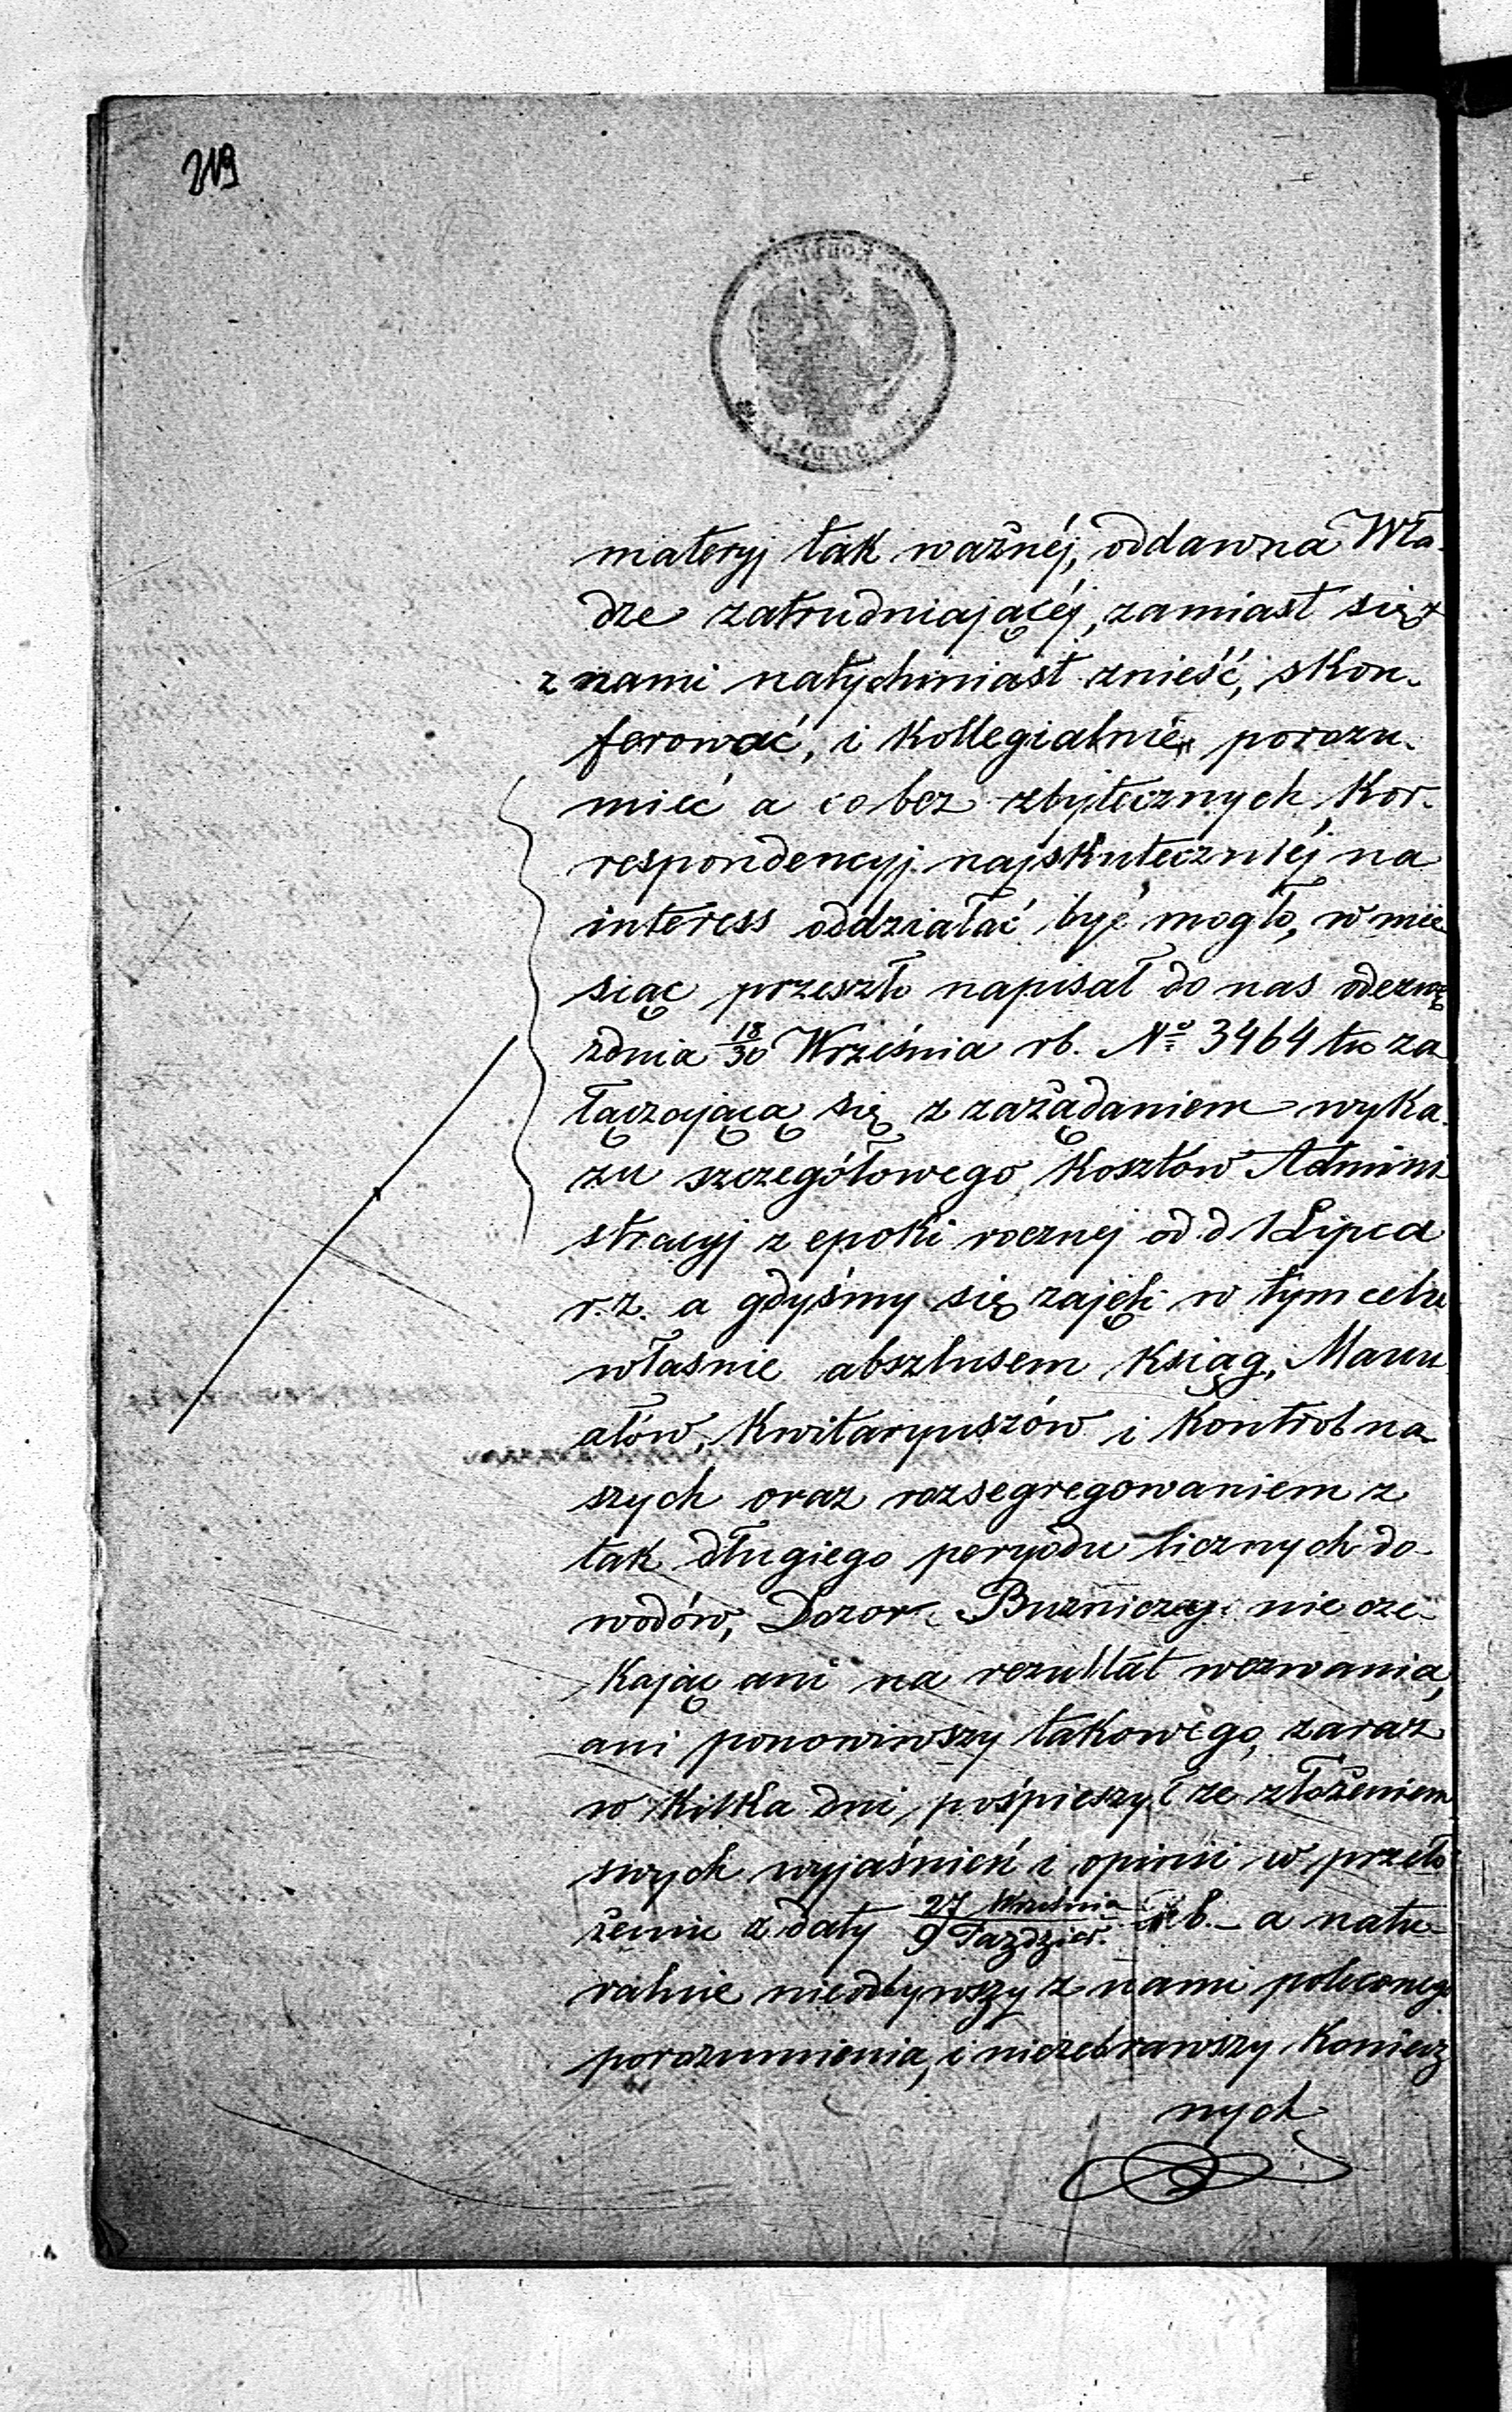 219
materyj tak ważnéj, oddawna Wła-
dze zatrudniającéj, zamiast się
z nami natychmiast znieść, skon-
ferować, i kollegialnie porozu-
mieć a co bez zbytecznych kor-
respondencyj najskuteczniéj na
interess oddziałać być mogło, w mie
siąc przeszło napisał do nas odezwę
zdnia 18/30 Września rb. No 3464 tu za
łączającą się z zażądaniem wyka-
zu szczegółowego kosztów Admini
stracyj z epoki rocznej od d 1 Lipca
r.z. a gdyśmy się zajęli w tym celu
właśnie abszlusem ksiąg, Manu
ałów, Kwitaryuszów i Kontrol na-
szych oraz rozsegregowaniem z
tak długiego peryodu licznych do-
wodów, Dozor Buzniczy nie cze-
kając ani na rezultat wezwania,
ani ponowiwszy takowego, zaraz
w kilka dni pośpieszył ze złożeniem
swych wyjaśnień i opinii w przeło
żeniu z daty 27 Września/9 Paździer. rb. – a natu-
ralnie nieodbywszy z nami poleconego
porozumienia, i niezebrawszy koniecz
nych